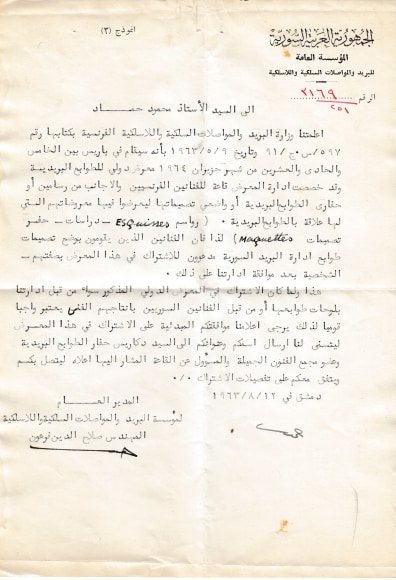 الجمهورية العربية السورية
المؤسسة العامة
للبريد والمواصلات السلكية واللاسلكية
الرقم ٣١٦٩
٢٥١
انموذج (٣)
الى السيد الأستاذ محمود حماد
اعلمتنا وزارة البريد والمواصلات السلكية واللاسلكية الفرنسية بكتابها رقم
٥٩٧/س٠ج/٩١ وتاريخ ١٩٦٣/٥/٩ بانه سيقام في باريس بين الخامس
والحادي والعشرين من شهر حزيران ١٩٦٤ معرض دولي للطوابع البريدية
وقد خصصت ادارة المعرض قاعة للفنانين الفرنسيين والاجانب من رسامين أو
حفاري الطوابع البريدية أو واضعي تصميماتها ليعرضوا فيها معروضاتهم التي
لها علاقة بالطوابع البريدية ٠ ( رواسم Esquisses - دراسات - حفر
تصميمات Maquettes) لذا فان الفنانين الذين يقومون بوضع تصميمات
طوابع ادارة البريد السورية مدعوون للاشتراك في هذا المعرض بصفتهم -
الشخصية بعد موافقة ادارتنا على ذلك ٠
هذا ولما كان الاشتراك في المعرض الدولي المذكور سواء من قبل ادارتنا
بلوحات طوابعها أو من قبل الفنانين السوريين بانتاجهم الفني يعتبر واجبا
قوميا لذلك يرجى اعلامنا موافقتكم المبدئية على الاشتراك في هذا المعرض
ليتسنى لنا ارسال اسمكم وعنوانكم الى السيد دكاريس حفار الطوابع البريدية
وعضو مجمع الفنون الجميلة والمسؤول عن القاعة المشار اليها اعلاه ليتصل بكم
ويتفق معكم على تفصيلات الاشتراك ٠/٠
دمشق في ١٩٦٣/٨/١٢
المدير العام
لمؤسسة البريد والمواصلات السلكية واللاسلكية
المهندس صلاح الدين فرعون